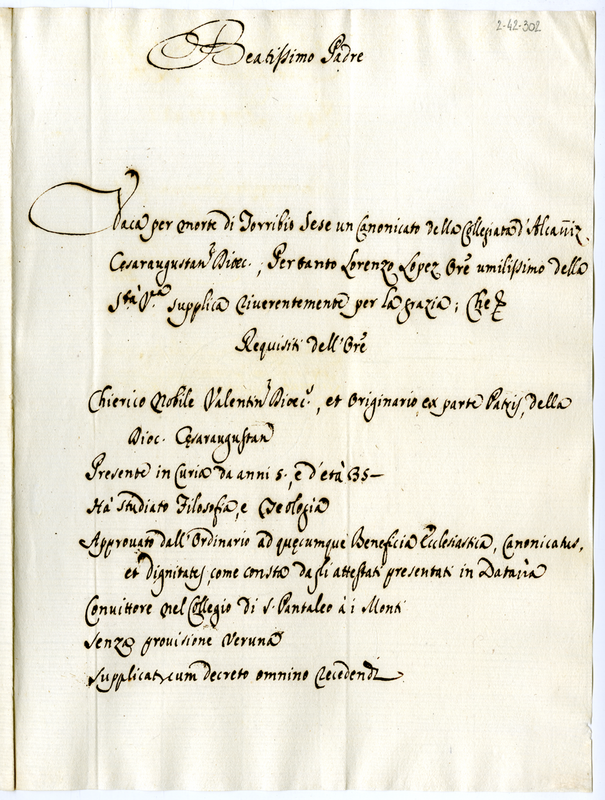 2-42-302
Beatissimo Padre
Vaca per morte di Torribio Sese un Canonicato della Collegiata d'Alcañiz
Cęsaraugustan Dioec. ; Pertanto Lorenzo Lopez Ore umilissimo della
Stà Vra supplica riverentemente per la grazia ; Che
Requisiti dell' Ore
Chierico Nobile Valentin Dioec., et originario ex parte Patris, della
Dioc. Cęsaraugustan
Presente in Curia da anni 5., e d'età 35
Hà studiato Filosofia, e Teologia
Approvato dall' Ordinario ad quęcumque Beneficia Ecclesiastica, Canonicatus,
et dignitates, come consta dagli attestati presentati in Dataria
Convittore nel Collegio di S. Pantaleo à i Monti
Senza provisione veruna
Supplicat cum decreto omnino recedendi